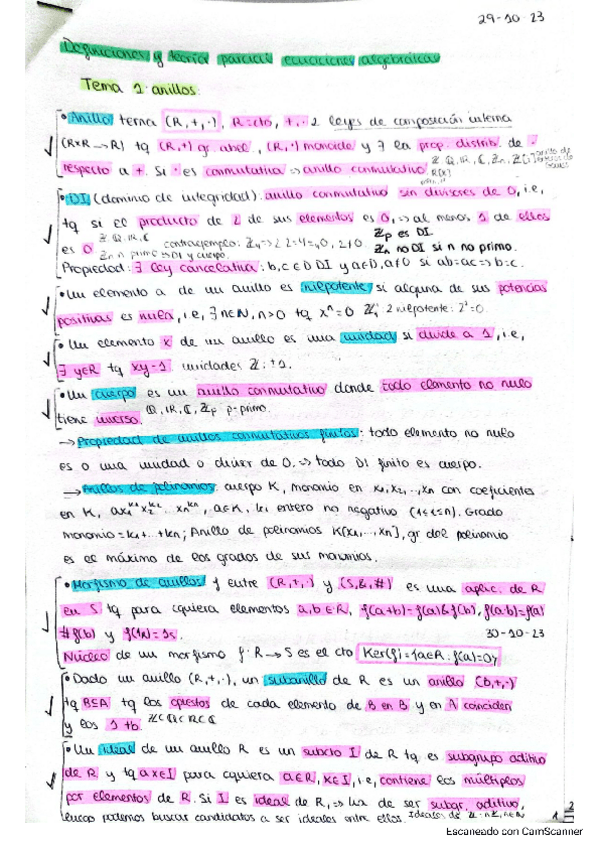 29-10-23
Definiciones y teoría parcial ecuaciones algebráicas
Tema 1: anillos.
• Anillo terna (R,+,·), R=cto, +,· 2 leyes de composición interna
(RxR→R) tq (R,+) gr. abel, (R,·) monoide y ∃ la prop. distrib. de ·
respecto a +. Si · es conmutativa ⇒ anillo conmutativo ℤ, ℚ, ℝ, ℂ, ℤn, ℤ[i]
• DI (dominio de integridad): anillo conmutativo sin divisores de 0, i.e,
tq si el producto de 2 de sus elementos es 0, ⇒ al menos 1 de ellos
es 0 ℤ, ℚ, ℝ, ℂ contraejemplo: ℤ4 ⇒ 2·2=4=0, 2≠0. ℤp es DI.
ℤn n primo ⇒ DI y cuerpo. ℤn no DI si n no primo.
Propiedad: ∃ ley cancelativa: b,c ∈ D DI y a∈D, a≠0 si ab=ac ⇒ b=c.
• Un elemento a de un anillo es nilpotente si alguna de sus potencias
positivas es nula, i.e, ∃ n∈ℕ, n>0 tq xⁿ=0 ℤ4: 2 nilpotente: 2²=0.
• Un elemento x de un anillo es una unidad si divide a 1, i.e,
∃ y∈R tq xy=1 unidades ℤ: ±1.
• Un cuerpo es un anillo conmutativo donde todo elemento no nulo
tiene inverso. ℚ, ℝ, ℂ, ℤp p-primo.
→ Propiedad de anillos conmutativos finitos: todo elemento no nulo
es o una unidad o divisor de 0. ⇒ todo DI finito es cuerpo.
→ Anillos de polinomios: cuerpo K, monomio en x1, x2, ..., xn con coeficientes
en K, ax1^k1 x2^k2 ... xn^kn, a∈K, ki entero no negativo (1≤i≤n). Grado
monomio = k1+...+kn; Anillo de polinomios K[x1,...,xn], gr del polinomio
es el máximo de los grados de sus monomios.
• Morfismo de anillos f entre (R,+,·) y (S,&,#) es una aplic. de R
en S tq para cquiera elementos a,b∈R, f(a+b)=f(a)&f(b), f(a·b)=f(a)
#f(b) y f(1R)=1s. 30-10-23
Núcleo de un morfismo f: R→S es el cto Ker(f)={a∈R: f(a)=0}
• Dado un anillo (R,+,·), un subanillo de R es un anillo (B,+,·)
tq B⊆A tq los opuestos de cada elemento de B en B y en A coinciden
y los 1 tb. ℤ⊂ℚ⊂ℝ⊂ℂ
• Un ideal de un anillo R es un subcto I de R tq es subgrupo aditivo
de R y tq ax∈I para cquiera a∈R, x∈I, i.e, contiene los múltiplos
por elementos de R. Si I es ideal de R, ⇒ ha de ser subgr. aditivo,
luego podemos buscar candidatos a ser ideales entre ellos. Ideales de ℤ: nℤ, n∈ℕ
1
Escaneado con CamScanner